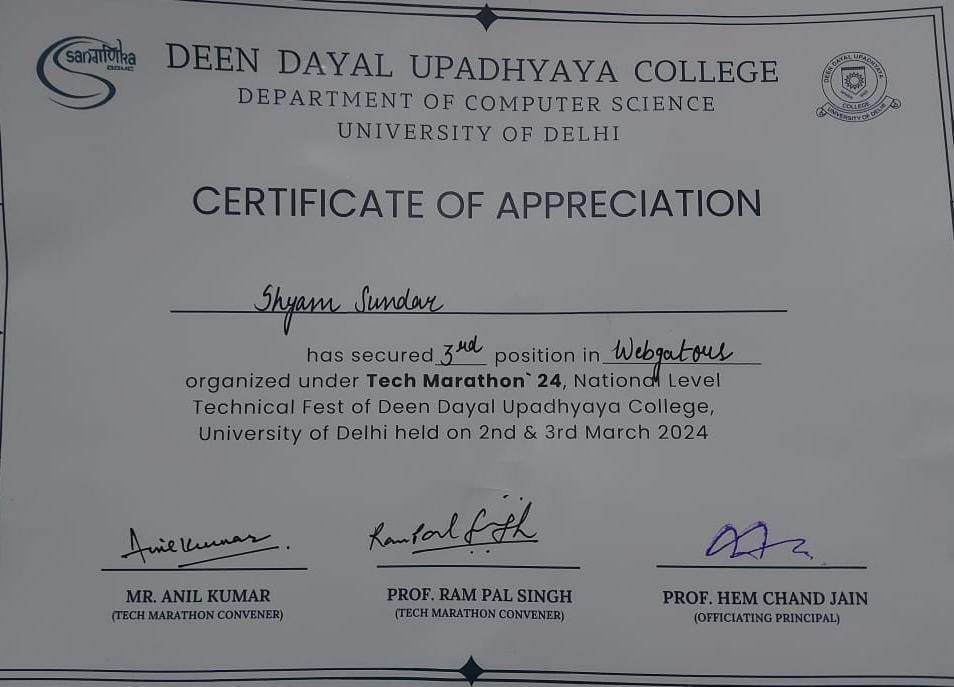 sanगणिka
DDUC
DEEN DAYAL UPADHYAYA COLLEGE
DEPARTMENT OF COMPUTER SCIENCE
UNIVERSITY OF DELHI
DEEN DAYAL UPADHYAYA
COLLEGE
UNIVERSITY OF DELHI
CERTIFICATE OF APPRECIATION
Shyam Sundar
has secured 3rd position in Webgatous
organized under Tech Marathon` 24, National Level
Technical Fest of Deen Dayal Upadhyaya College,
University of Delhi held on 2nd & 3rd March 2024
Anil Kumar
Ram Pal Singh
MR. ANIL KUMAR
(TECH MARATHON CONVENER)
PROF. RAM PAL SINGH
(TECH MARATHON CONVENER)
PROF. HEM CHAND JAIN
(OFFICIATING PRINCIPAL)